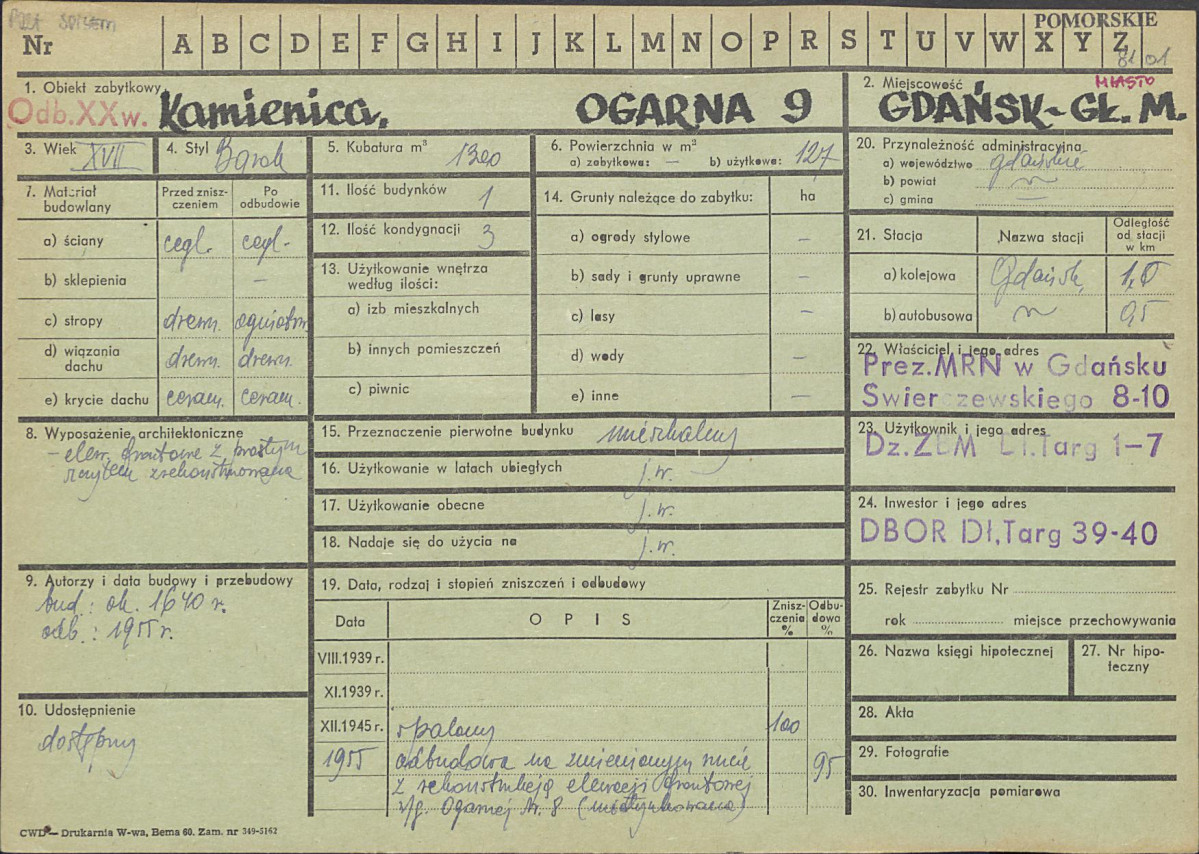 POZA SPISEM
POMORSKIE
Nr A B C D E F G H I J K L M N O P R S T U V W X Y Z
81 01
1. Obiekt zabytkowy
Odb. XX w. Kamienica, OGARNA 9
2. Miejscowość MIASTO
GDAŃSK-GŁ. M.
3. Wiek XVII
4. Styl Barok
5. Kubatura m³ 1300
6. Powierzchnia w m²
a) zabytkowa: — b) użytkowa: 127
7. Materiał budowlany
Przed zniszczeniem
Po odbudowie
a) ściany cegl. cegl.
b) sklepienia —
c) stropy drewn. ogniotrw.
d) wiązania dachu drewn. drewn.
e) krycie dachu ceram. ceram.
8. Wyposażenie architektoniczne
- elew. frontowa z prostym
szczytem zrekonstruowana
9. Autorzy i data budowy i przebudowy
bud.: ok. 1640 r.
odb.: 1955 r.
10. Udostępnienie
dostępny
11. Ilość budynków 1
12. Ilość kondygnacji 3
13. Użytkowanie wnętrza
według ilości:
a) izb mieszkalnych
b) innych pomieszczeń
c) piwnic
14. Grunty należące do zabytku: ha
a) ogrody stylowe —
b) sady i grunty uprawne —
c) lasy —
d) wody —
e) inne —
15. Przeznaczenie pierwotne budynku mieszkalny
16. Użytkowanie w latach ubiegłych j.w.
17. Użytkowanie obecne j.w.
18. Nadaje się do użycia na j.w.
19. Data, rodzaj i stopień zniszczeń i odbudowy
Data OPIS Zniszczenia % Odbudowa %
VIII.1939 r.
XI.1939 r.
XII.1945 r. spalony 100
1955 odbudowa na zmienionym rzucie 95
z rekonstrukcją elewacji frontowej
w/g. Ogarnej Nr. 8 (nieotynkowana)
20. Przynależność administracyjna
a) województwo gdańskie
b) powiat
c) gmina —
21. Stacja Nazwa stacji Odległość od stacji w km
a) kolejowa Gdańsk 1,0
b) autobusowa 0,5
22. Właściciel i jego adres
Prez. MRN w Gdańsku
Świerczewskiego 8-10
23. Użytkownik i jego adres
Dz. ZBM Dł. Targ 1-7
24. Inwestor i jego adres
DBOR Dł, Targ 39-40
25. Rejestr zabytku Nr
rok miejsce przechowywania
26. Nazwa księgi hipotecznej
27. Nr hipoteczny
28. Akta
29. Fotografie
30. Inwentaryzacja pomiarowa
CWD — Drukarnia W-wa, Bema 60. Zam. nr 349-5162